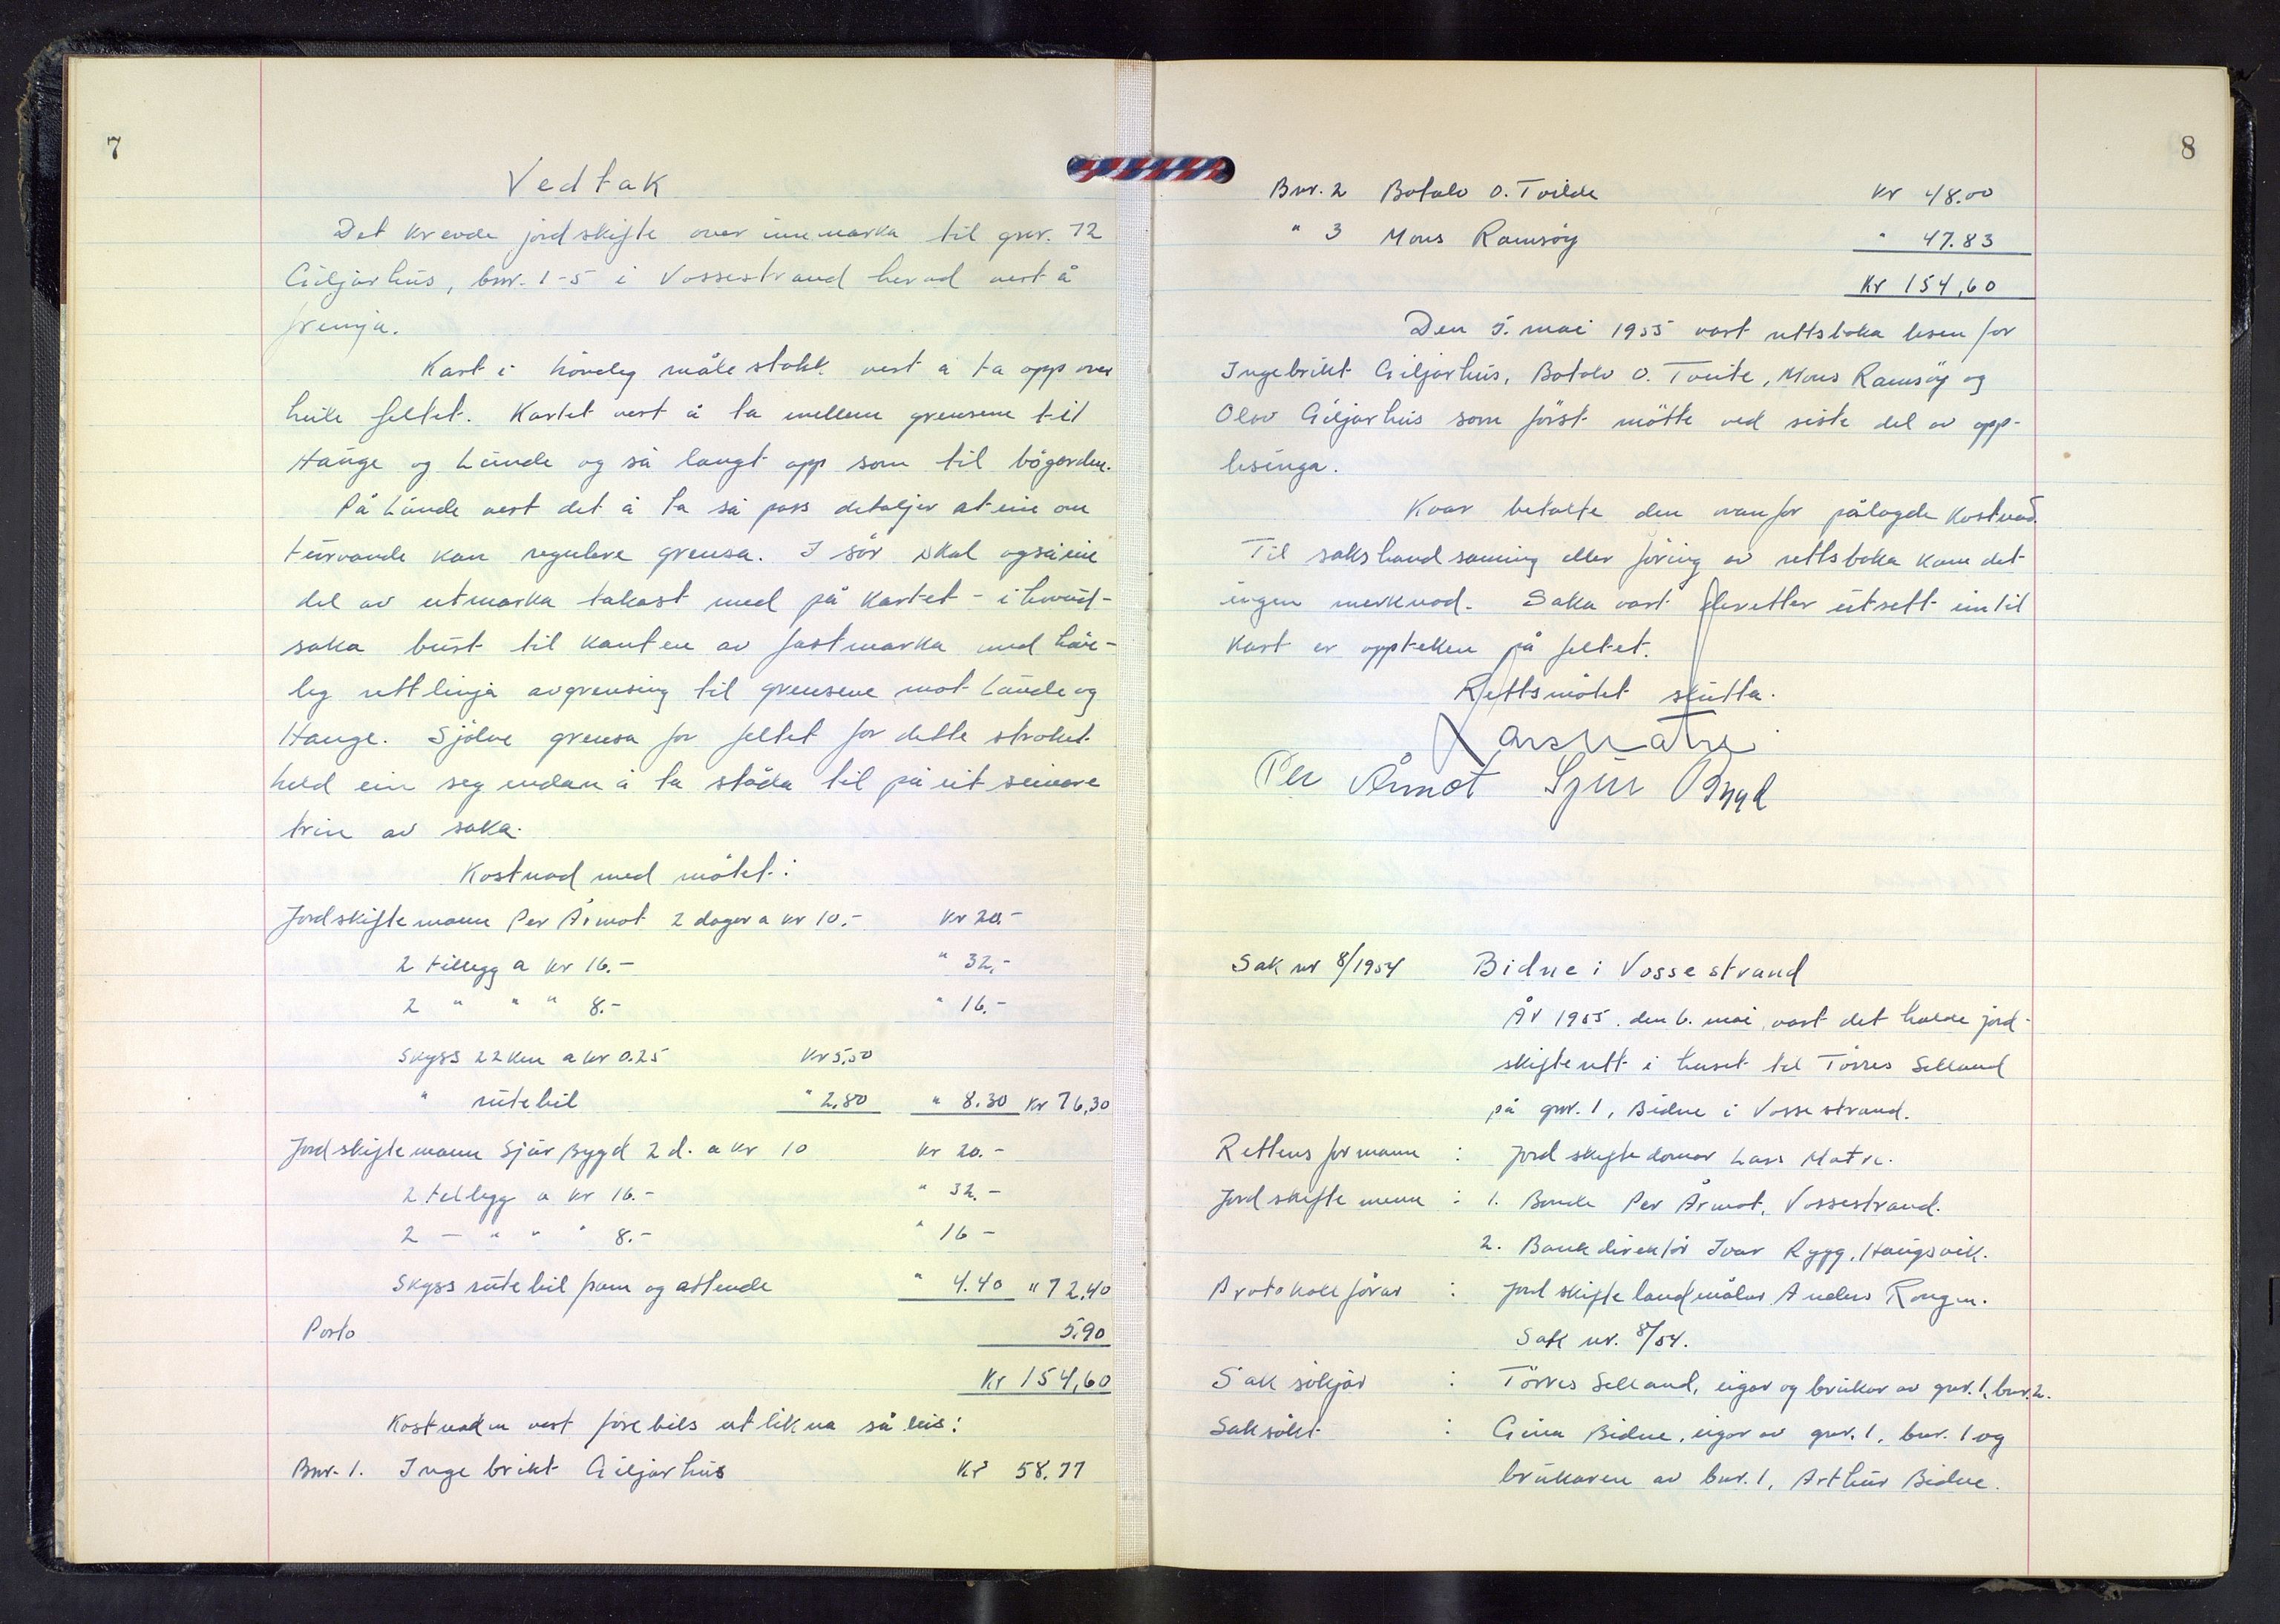 7
Vedtak
Det krevde jordskifte over innmarka til gnr. 72
Giljarhus, bnr. 1-5 i Vossestrand herad vert å
fremja.
Kart i høveleg målestokk vert å ta opp over
heile feltet. Kartet vert å ta mellem grensene til
Hauge og Lunde og så langt opp som til bögarden.
På Lunde vert det å ta så pass detaljer at ein om
turvande kan regulere grensa. I sör skal også ein
del av utmarka takast med på kartet - i hovud-
saka burt til kanten av fastmarka med häve-
leg rettlinja avgrensing til grensene mot Lunde og
Hauge. Sjölve grensa for feltet for dette stroket
held ein seg undan å ta ståda til på eit seinare
trin av saka.
Kostnad med mötet:
Jordskiftemann Per Årmot 2 dager a kr 10.- kr 20.-
2 tillegg a kr 16.- " 32,-
2 " " " 8.- " 16.-
Skyss 22 km a kr 0.25 Kr 5,50
" rutebil " 2,80 " 8.30 Kr 76,30
Jordskiftemann Sjur Bygd 2 d. a kr 10 kr 20.-
2 tillegg a kr 16.- " 32.-
2 - " " " 8.- " 16 -
Skyss rutebil fram og attende " 4.40 " 72,40
Porto 5.90
Kr 154,60
Kostnaden vert førebils utlikna så leis:
Bnr. 1. Ingebrikt Giljarhus Kr 58.77
8
Bnr. 2 Botolv O. Tvilde Kr 48.00
" 3 Mons Ramsöy " 47.83
Kr 154,60
Den 5. mai 1955 vart rettsboka lesen for
Ingebrikt Giljarhus, Botolv O. Tveite, Mons Ramsöy og
Olav Giljarhus som först mötte ved siste del av opp-
lesinga.
Kvar betalte den ovanfor pålagde kostnad.
Til sakshandsaming eller föring av rettsboka kom det
ingen merknad. Saka vart deretter utsett inntil
kart er oppteken på feltet.
Rettsmötet slutta.
Lars Matre
Per Årmot Sjur Bygd
Sak nr 8/1954 Bidne i Vossestrand
År 1955. den 6. mai, vart det halde jord-
skifterett i huset til Torres Selland
på gnr. 1, Bidne i Vossestrand.
Rettens formann : Jordskiftedomar Lars Matre.
Jordskiftemenn : 1. Bonde Per Årmot, Vossestrand.
2. Bankdirektör Ivar Rygg, Haugsvik.
Protokollförar : Jordskiftelandmålar Anders Rongen.
Sak nr. 8/54.
Saksökjar : Törres Selland, eigar og brukar av gnr. 1, bnr. 2.
Saksökt : Gina Bidne, eigar av gnr. 1, bnr. 1 og
brukaren av bnr. 1, Arthur Bidne.